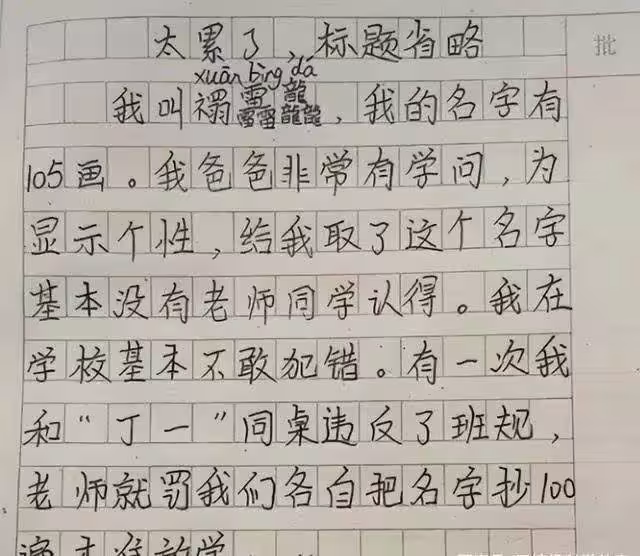 太累了，标题省略
xuān bìng dá
我叫禤靐龘，我的名字有
105画。我爸爸非常有学问，为
显示个性，给我取了这个名字
基本没有老师同学认得。我在
学校基本不敢犯错。有一次我
和“丁一”同桌违反了班规，
老师就罚我们各自把名字抄100
遍才准放学
批